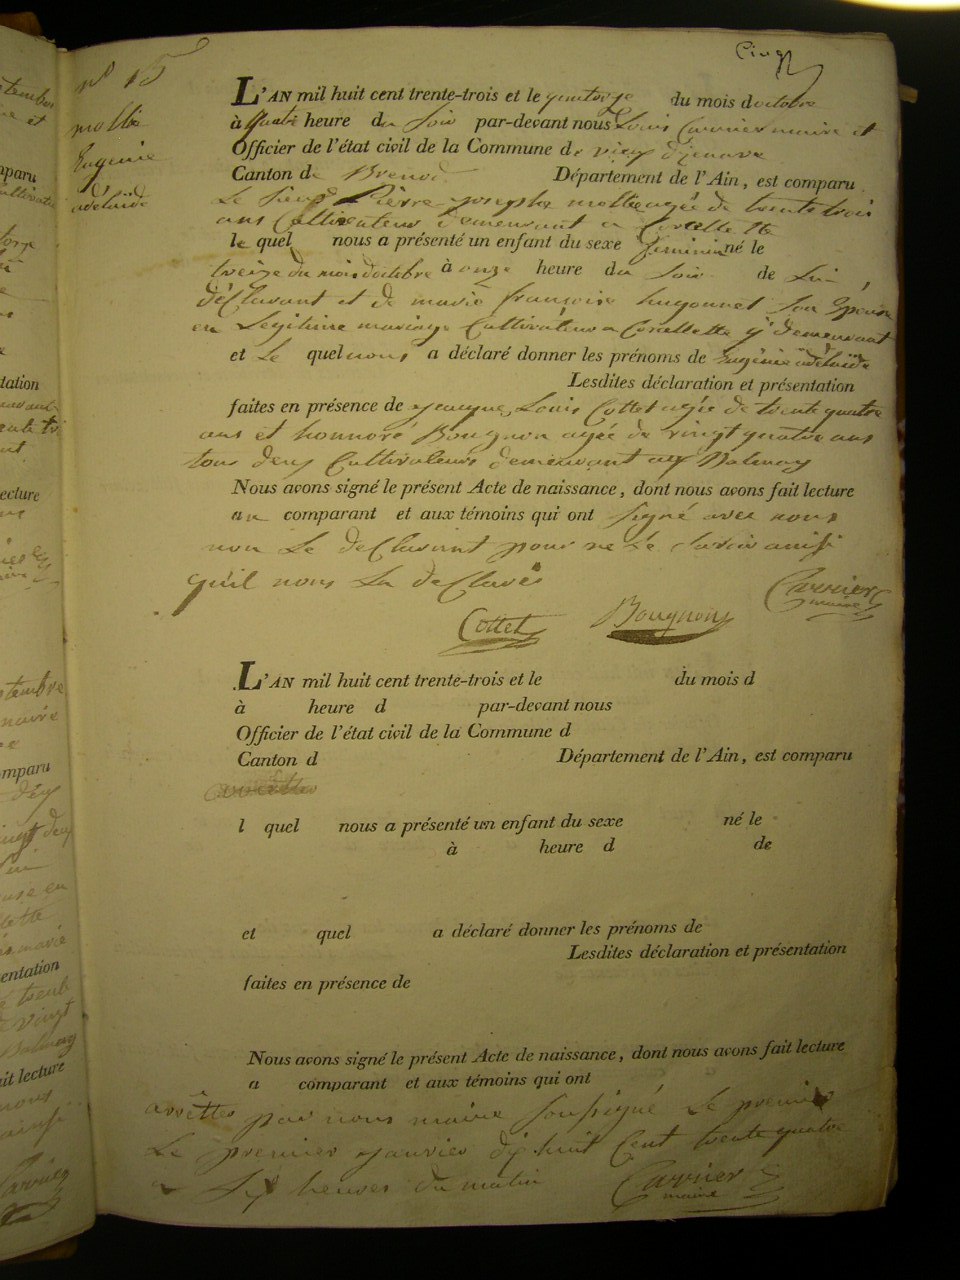 Cinq
nº 15
mollie
Eugénie
adélaïde
L'AN mil huit cent trente-trois et le quatorze du mois doctobre
à quatre heure du soir par-devant nous Louis Carrier maire et
Officier de l'état civil de la Commune de vieux d'izenave
Canton de Brenod Département de l'Ain, est comparu
Le Sieur Pierre joseph mollie agée de trente trois
ans Cultivateur demeurant a Corcellette
le quel nous a présenté un enfant du sexe feminin né le
treize du mois doctobre à onze heure du soir de Lui
déClarant et de marie françoise hugonnet son Epouse
en Legitime mariage Cultivateurs a Corcellette y demeurant
et Le quel nous a déclaré donner les prénoms de Eugénie adélaïde
Lesdites déclaration et présentation
faites en présence de jacque Louis Cottet agée de trente quatre
ans et honnoré Bougnon agée de vingt quatre ans
tous deux Cultivateurs demeurant aux Balmay
Nous avons signé le présent Acte de naissance, dont nous avons fait lecture
au comparant et aux témoins qui ont signé avec nous
non Le deClarant pour ne Le savoir ainsi
qu'il nous La deClaré
Carrier
maire
Cottet Bougnon
L'AN mil huit cent trente-trois et le du mois d
à heure d par-devant nous
Officier de l'état civil de la Commune d
Canton d Département de l'Ain, est comparu
l quel nous a présenté un enfant du sexe né le
à heure d de
et quel a déclaré donner les prénoms de
Lesdites déclaration et présentation
faites en présence de
Nous avons signé le présent Acte de naissance, dont nous avons fait lecture
a comparant et aux témoins qui ont
arrêttes par nous maire soussigné Le premier
Le premier janvier dix huit Cent trente quatre
a Six heures du matin Carrier
maire